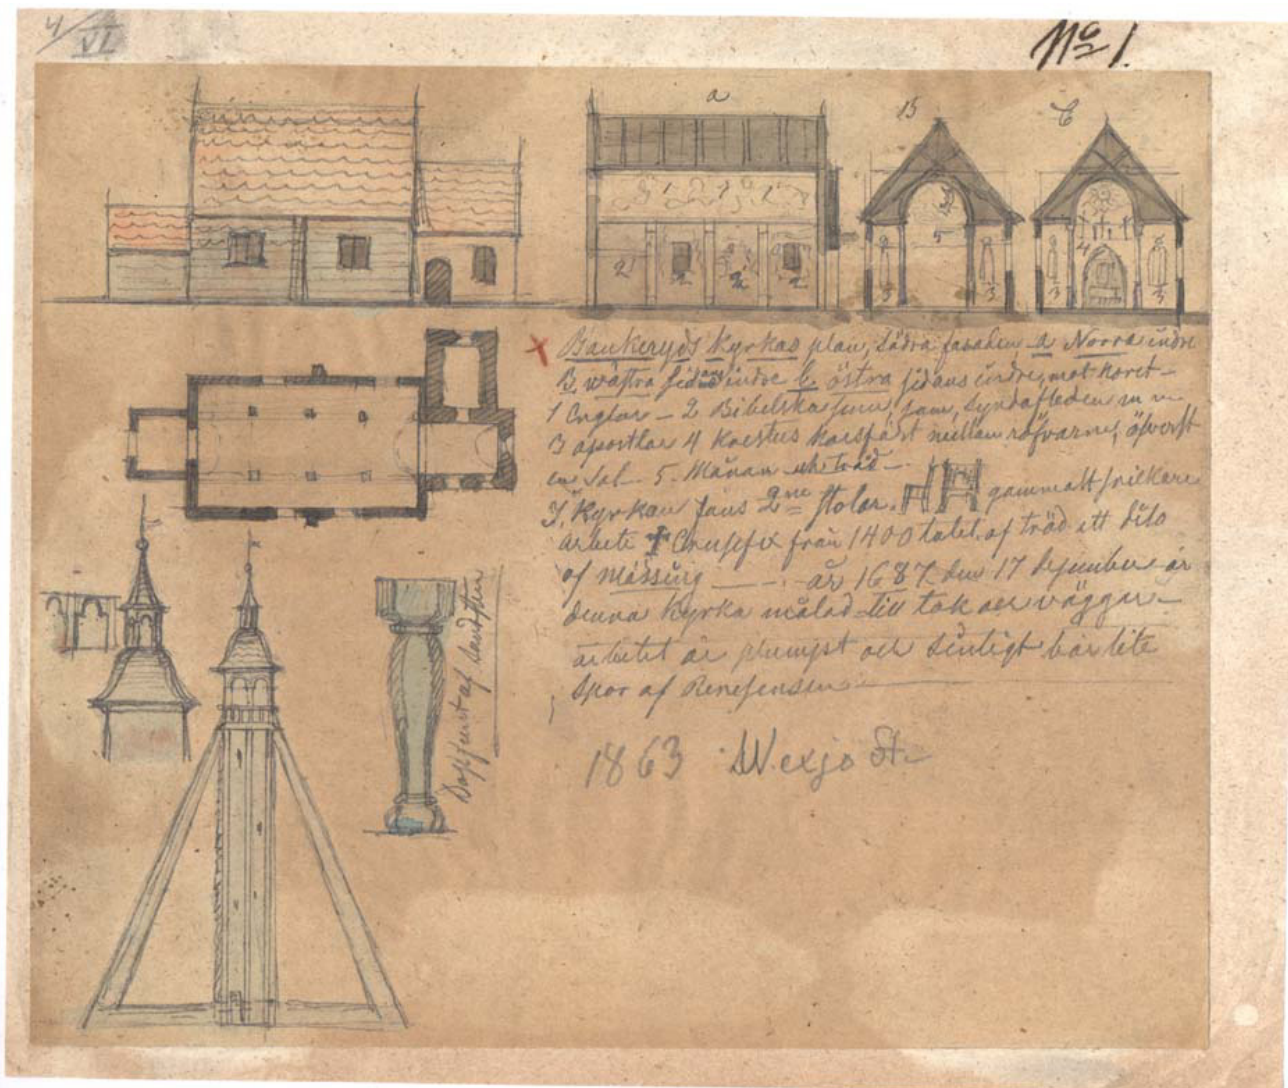 4/VI
No 1.
a
B
C
1 1 1 1
2 2 2 2
5
3 3
4
3 3
Bankeryds Kyrkas plan, Södra fasaden a Norra indre
B. wästra sidans indre C. östra sidans indre, mot Koret -
1 Englar - 2 Bibelska som, Syndafloden m m
3 apostlar 4 Kristus Korsfäst mellan röfvarne, öfverst
en Sol - 5. Månen och träd -
I Kyrkan fans 2ne Stolar. gammalt snickare
arbete Crusefix från 1400 talet af träd ett dito
af mässing - år 1687 den 17 December är
denna Kyrka målad till tak och väggar -
arbetet är plumpt och bär lite
Spor af Renesensen
1863 Wexjo St.
Dopfunt af Sandsten